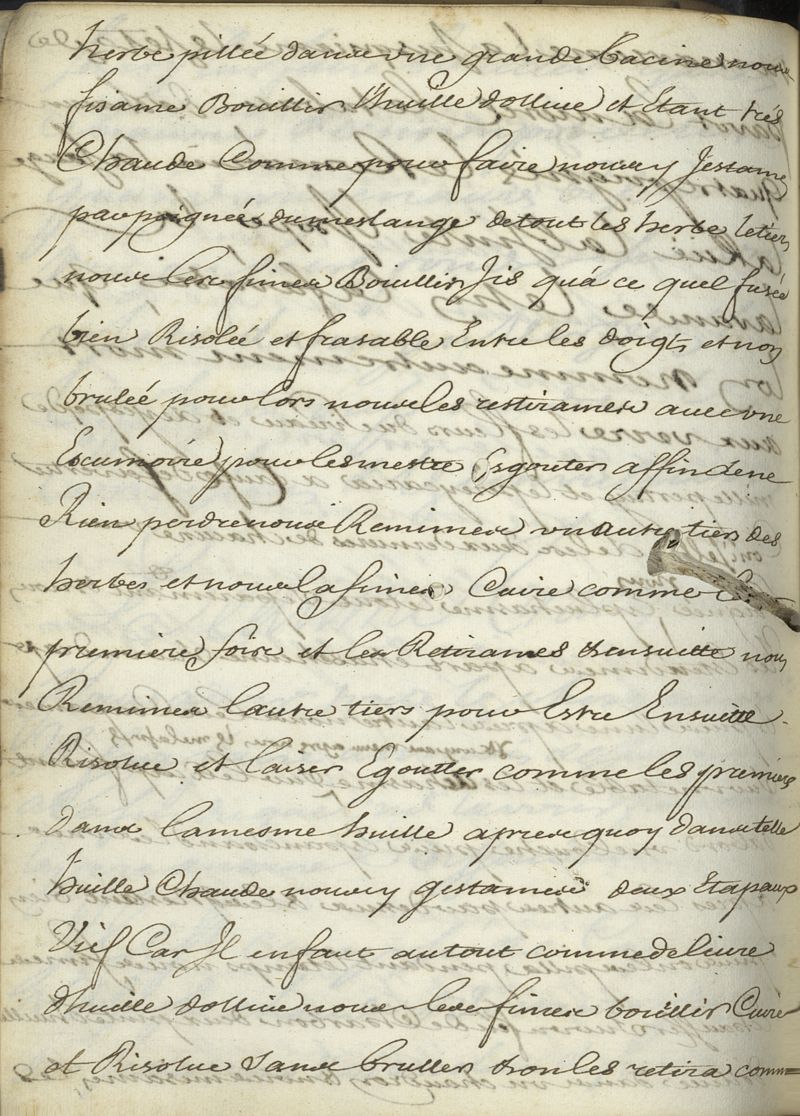 herbe pillée dans une grande bacine nous
fisame Bouillir l'huille dollive et Etant tres
Chaude Comme pour faire nous y Jestame
par poignées du meslange de tout les herbe le tier
nous les fimes Bouillir Jis qu'á ce quel fusée
bien Risolée et frasable Entre les doigts et non
brulée pour lors nous les restirames avec une
Escumoire pour les mestre Esgouter affin de ne
Rien perdre nous Remimes un autre tiers des
herbes et nous la fimes Cuire comme la
premiere foire et les Retirames Ensuitte nous
Remimes lautre tiers pour Estre Ensuitte
Risolue et laiser Egoutter comme les premiers
dans la mesme huille apres quoy dans telle
huille Chaude nous y gestames deux Etapaux
Vif Car Jl en faut autout comme de livre
d'huille dollive nous les fimes boüillir Cuire
et Risolue sans bruller lon les retira comm=